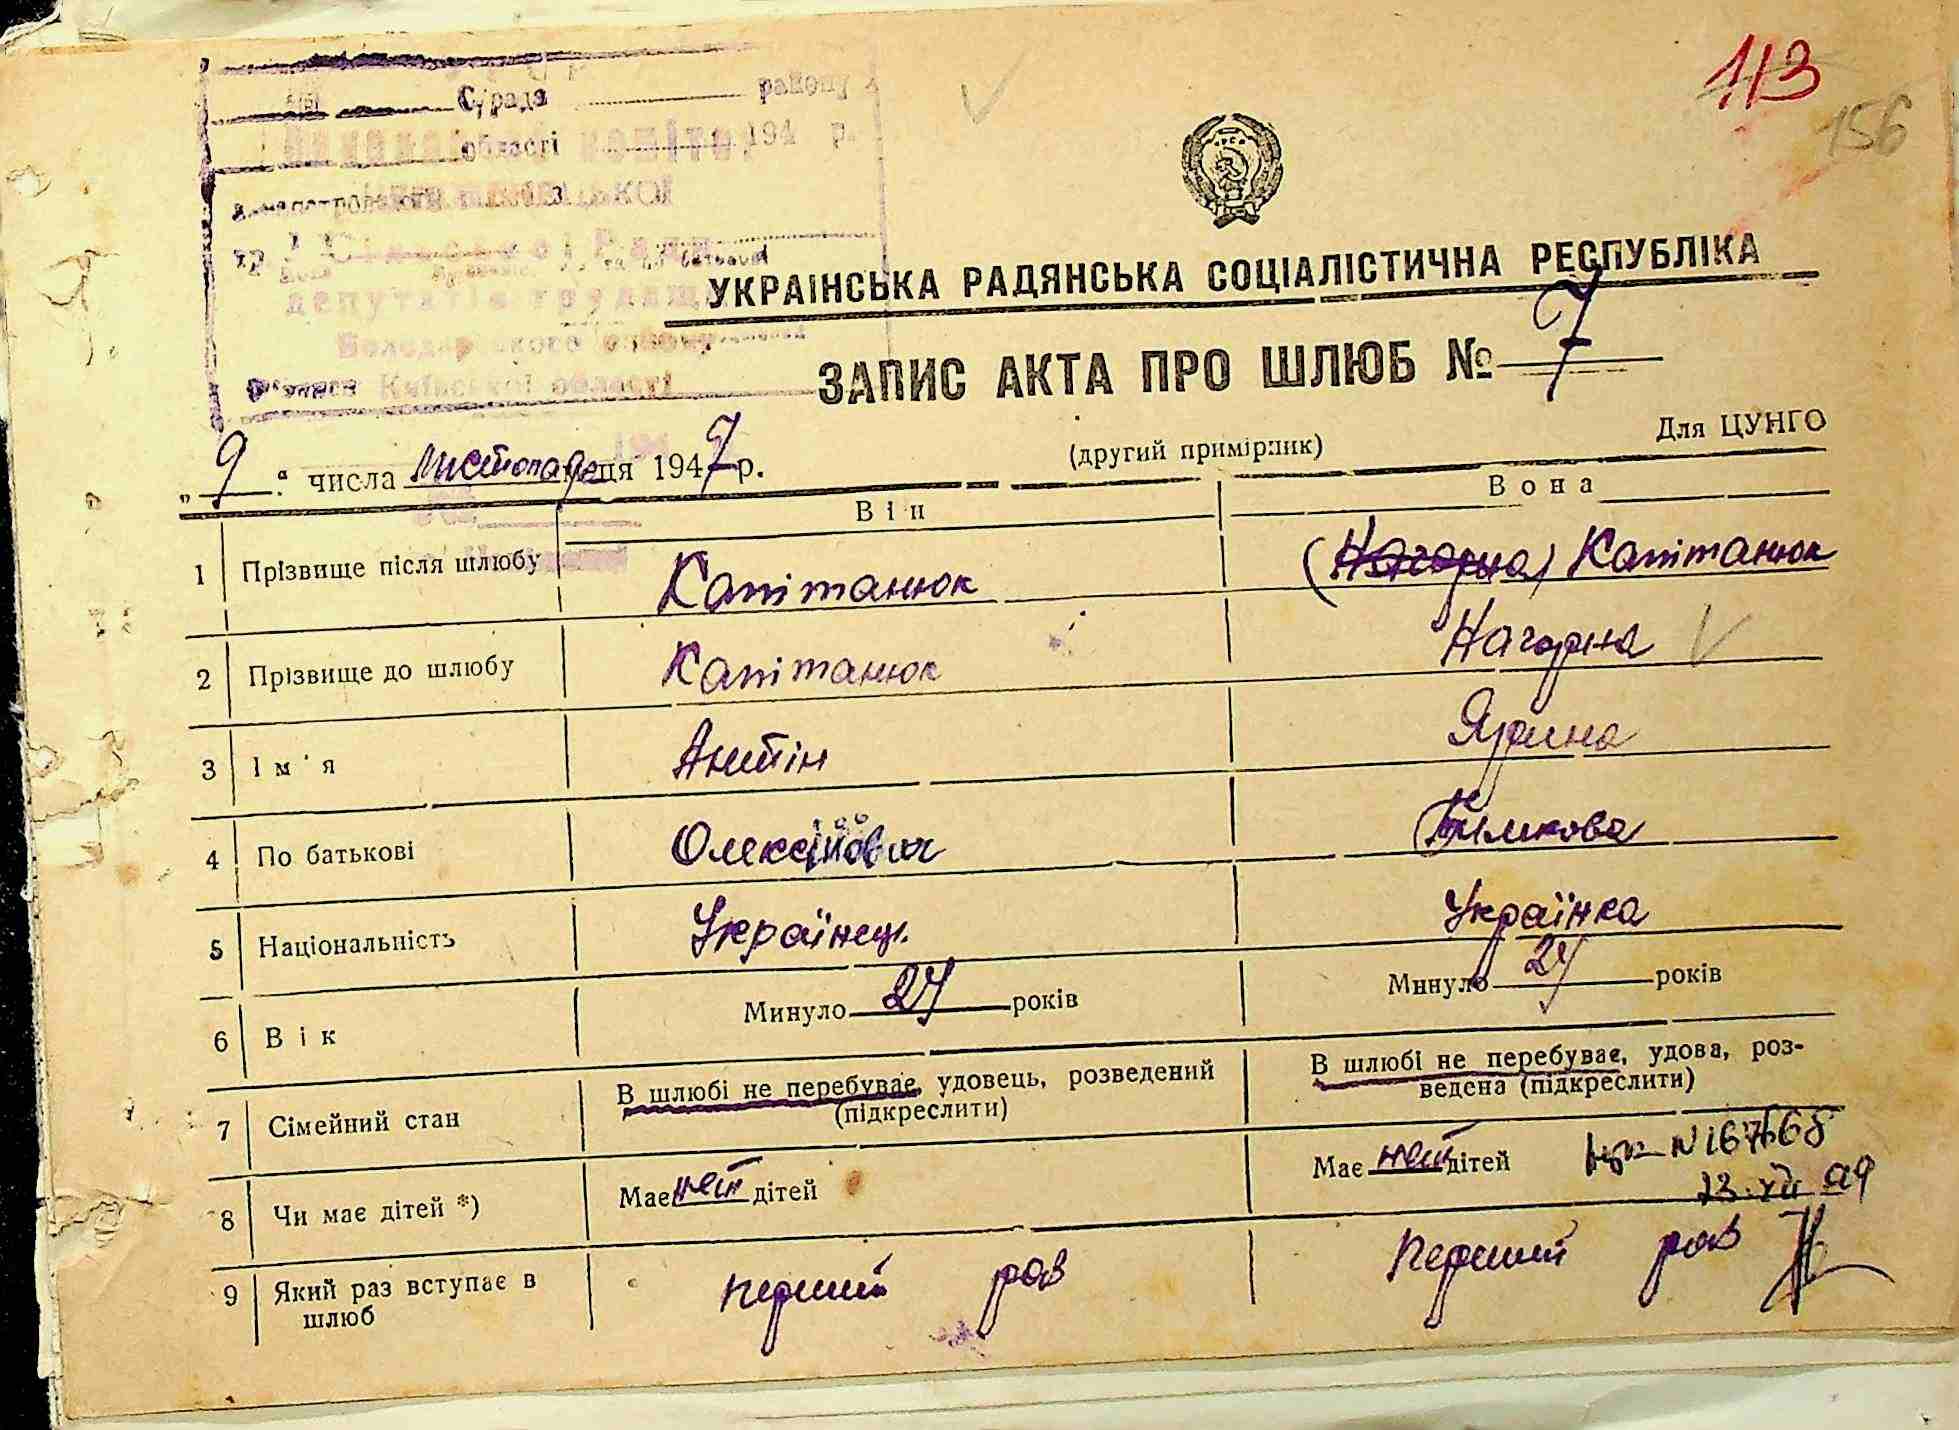 113
156
С/рада району
області 194 р.
Київської області
УКРАЇНСЬКА РАДЯНСЬКА СОЦІАЛІСТИЧНА РЕСПУБЛІКА
ЗАПИС АКТА ПРО ШЛЮБ № 7
(другий примірник) Для ЦУНГО
„9“ числа листопада ця 1947 р.
Він Вона
1 Прізвище після шлюбу Капітанюк (Нагорна) Капітанюк
2 Прізвище до шлюбу Капітанюк Нагорна
3 Ім'я Антін Ярина
4 По батькові Олексійович
5 Національність Українець. Українка
6 Вік Минуло 24 років Минуло 24 років
7 Сімейний стан В шлюбі не перебуває, удовець, розведений (підкреслити) В шлюбі не перебуває, удова, роз-
ведена (підкреслити)
8 Чи має дітей *) Має нет дітей Має нет дітей
9 Який раз вступає в шлюб перший раз перший раз